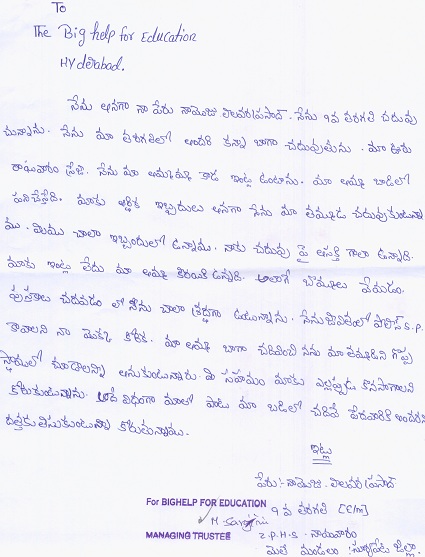 To
The Big help for Education
Hyderabad.
నేను అనగా నా పేరు నామొజు వరప్రసాద్. నేను 9వ తరగతి చదువు
చున్నాను. నేను మా తరగతిలో అందరి కన్నా బాగా చదువుతును. మా ఊరు
నేను మా అమ్మమ్మ కాడ ఇంట్ల ఉంటాను. మా అమ్మ బాడిలో
పనిచేస్తోది. మాకు ఆర్థిక ఇబ్బదులు అనగా నేను మా తమ్ముడ చదువుకుంటున్నా
ము. మేము చాలా ఇబ్బందులో ఉన్నాము. నాకు చదువు పై ఆసక్తి గాలా ఉన్నాది.
మాకు ఇల్లు లేదు మా అమ్మ ఉన్నది. అలాగే బొమ్మలు వేయడం.
పుస్తకాలు చదవడం లో నేను చాలా శ్రద్ధగా ఉంటున్నాను. నేను జీవితంలో పోలీస్ S.P.
కావాలని నా మొక్క కోరిక. మా అమ్మ బాగా చదివించి నను మా తమ్ముడిని గొప్ప
స్థాయిలో చూడాలన్ని అనుకుంటున్నారు. మీ సహయం మాకు ఎల్లప్పుడు కొనసాగాలని
కోరుకుంటున్నాను. ఇదే విధంగా మాలో పాటు మా బడిలో చదివే పేదవారికి అందరిని
దత్తకు తీసుకుంటున్నా కోరుతున్నాము.
ఇట్లు
పేరు :- నామొజు. వరప్రసాద్
9 వ తరగతి [E/m]
Z.P.H.S. నాయవారం
మండలం సూర్యాపేట జిల్లా.
For BIGHELP FOR EDUCATION
MANAGING TRUSTEE